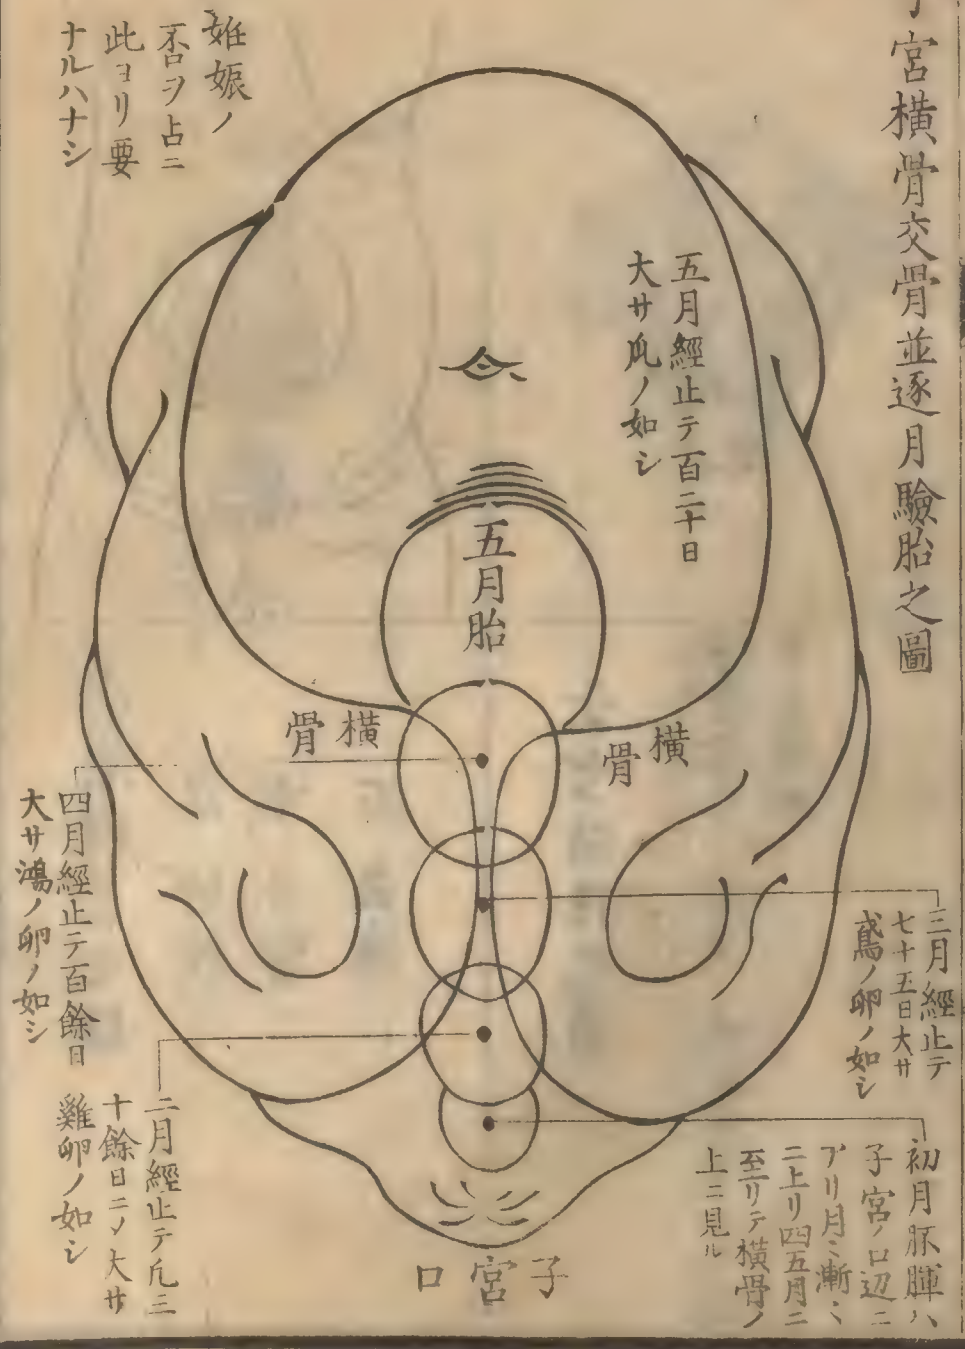 子宮橫骨交骨並逐月驗胎之圖
五月經止テ百二十日
大サ瓜ノ如シ
妊娠ノ
否ヲ占ニ
此ヨリ要
ナルハナシ
五月胎
橫骨
橫骨
三月經止テ
七十五日大サ
鳶ノ卵ノ如シ
四月經止テ百餘日
大サ鴻ノ卵ノ如シ
初月胚腪ハ
子宮ノ口辺ニ
アリ月ミ漸ミ
ニ上リ四五月ニ
至リテ橫骨ノ
上ニ見ル
二月經止テ凡三
十餘日ニノ大サ
雞卵ノ如シ
子宮口